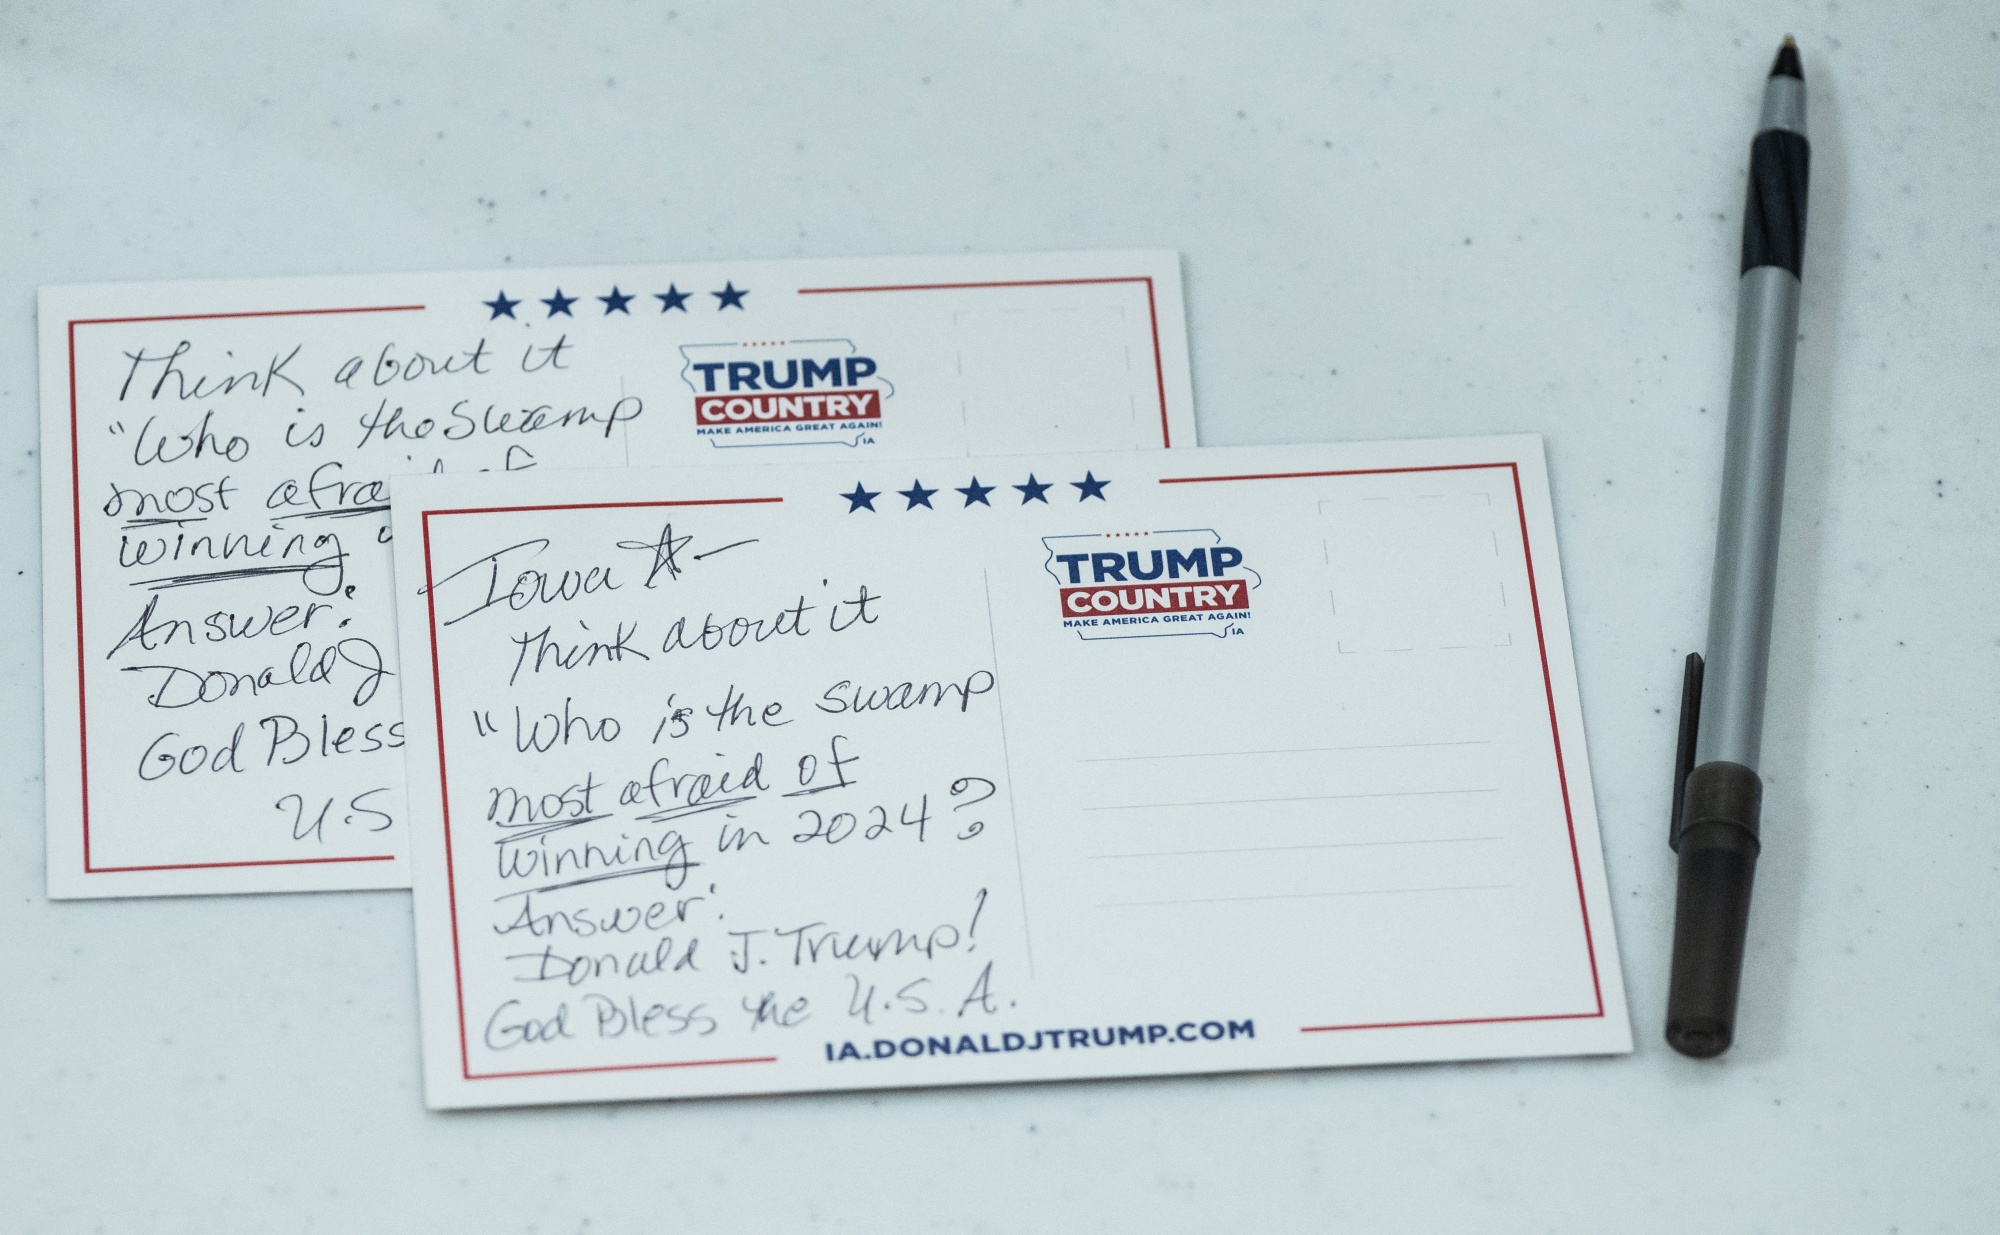 Think about it
"Who is the Swamp
most
winning
Answer:
Donald J
God Bless
U.S
TRUMP
COUNTRY
MAKE AMERICA GREAT AGAIN!
IA
Iowa
Think about it
"Who is the swamp
most afraid of
winning in 2024?
Answer:
Donald J. Trump!
God Bless the U.S.A.
TRUMP
COUNTRY
MAKE AMERICA GREAT AGAIN!
IA
IA.DONALDJTRUMP.COM